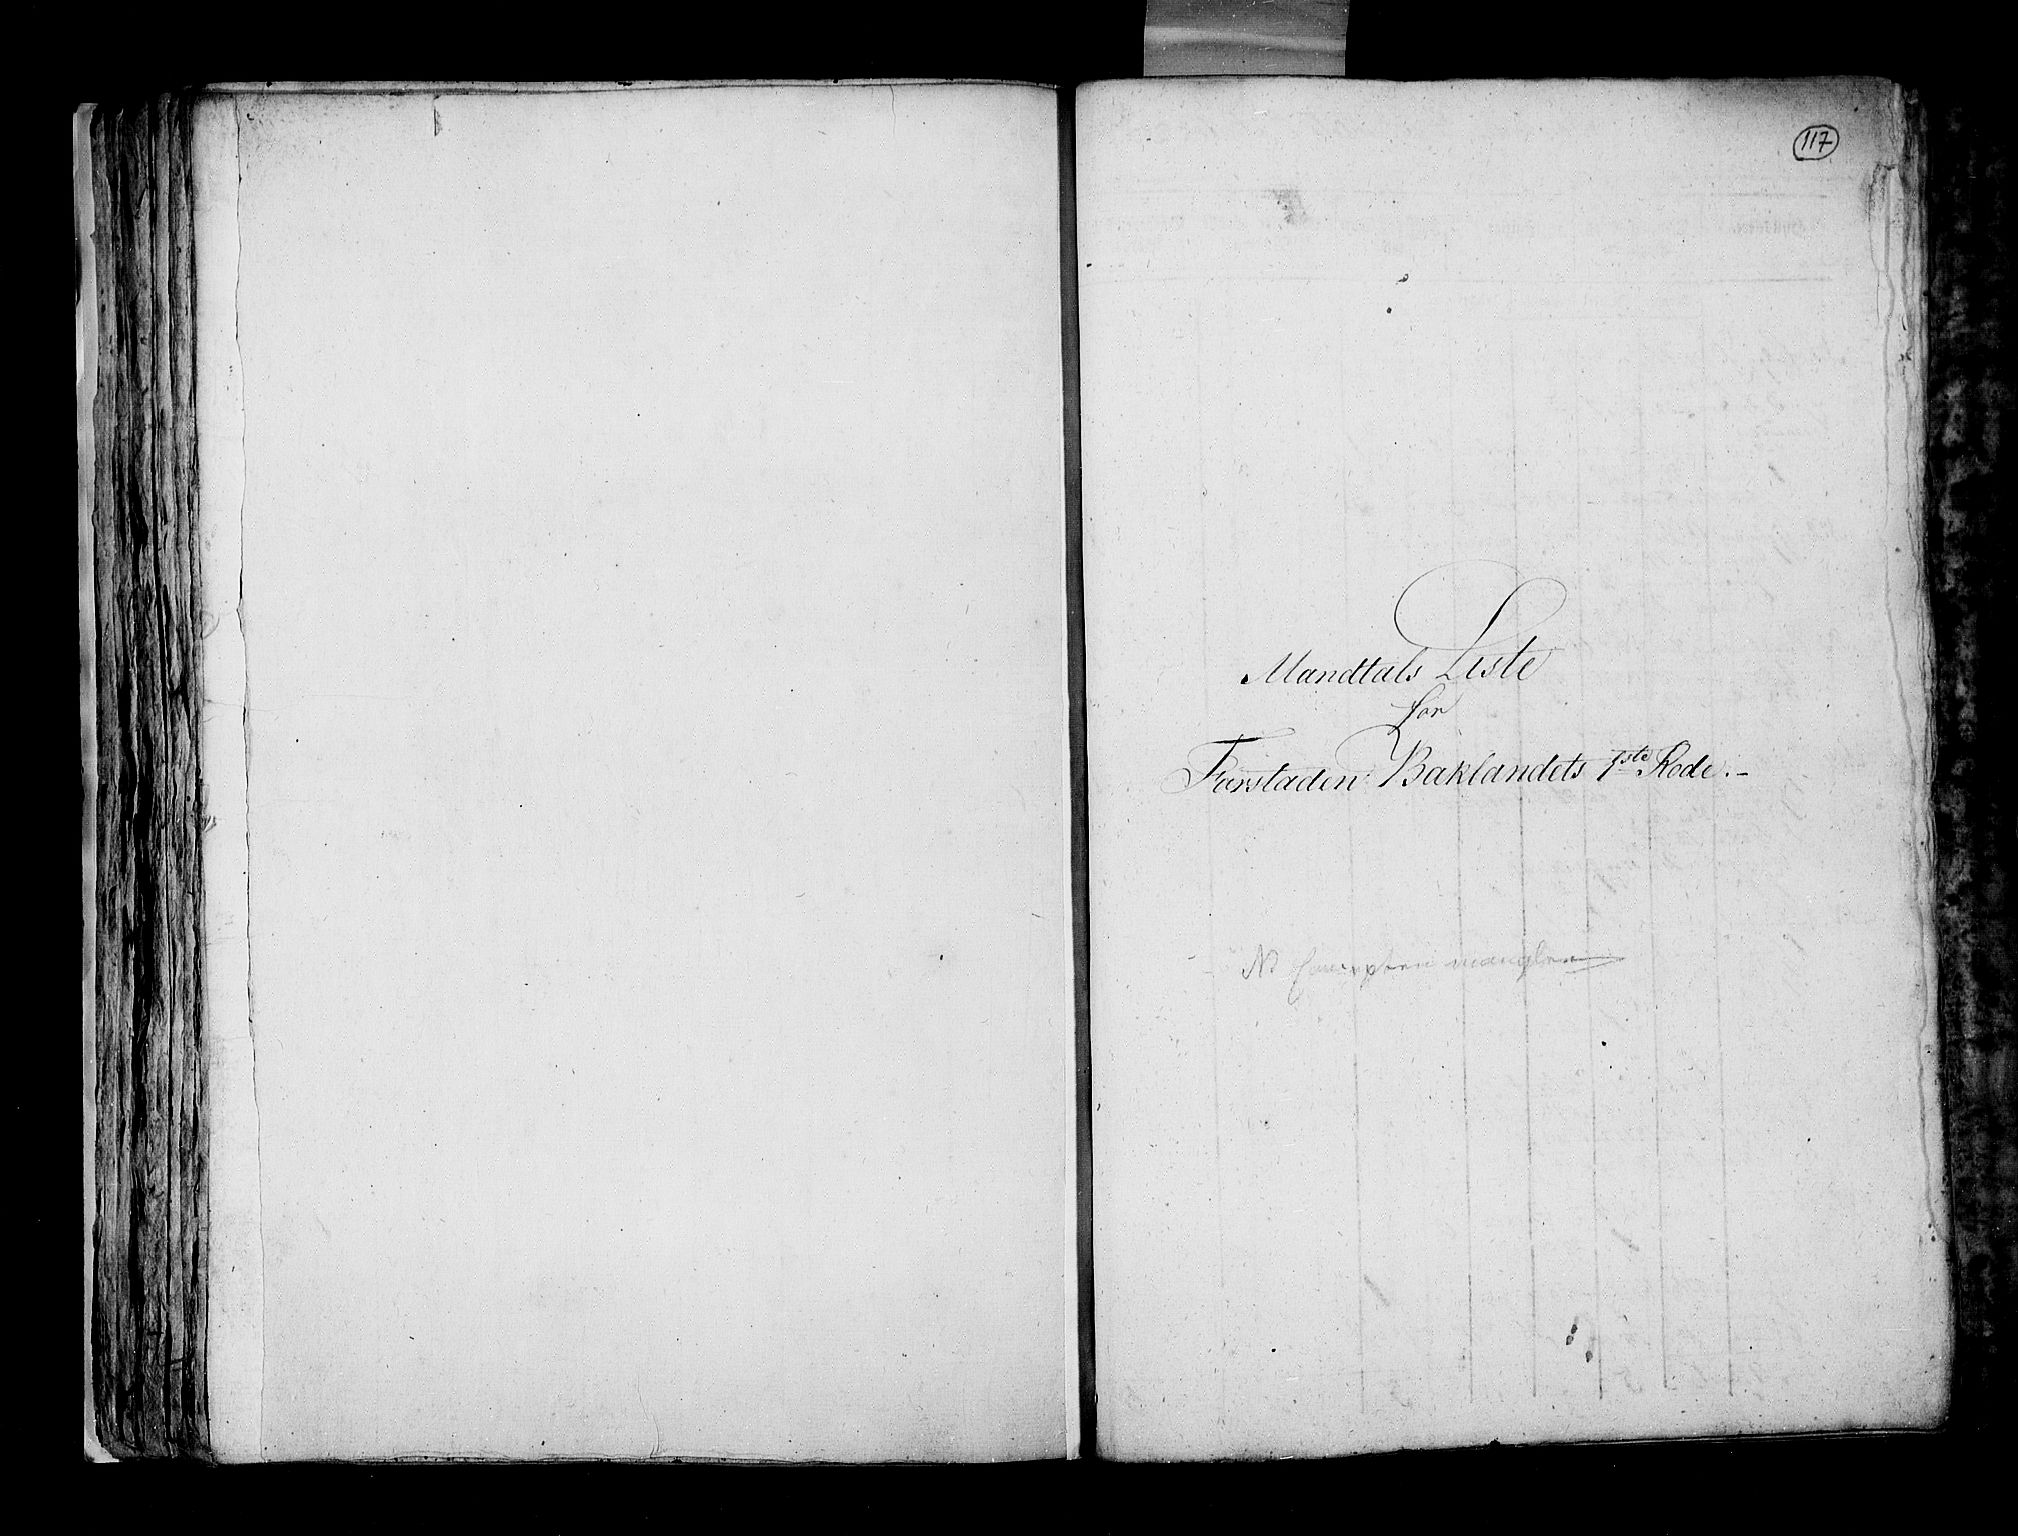 117
Mandtals Liste
for
Forstaden Baklandets 1ste Rode.-
NB Concepten mangler